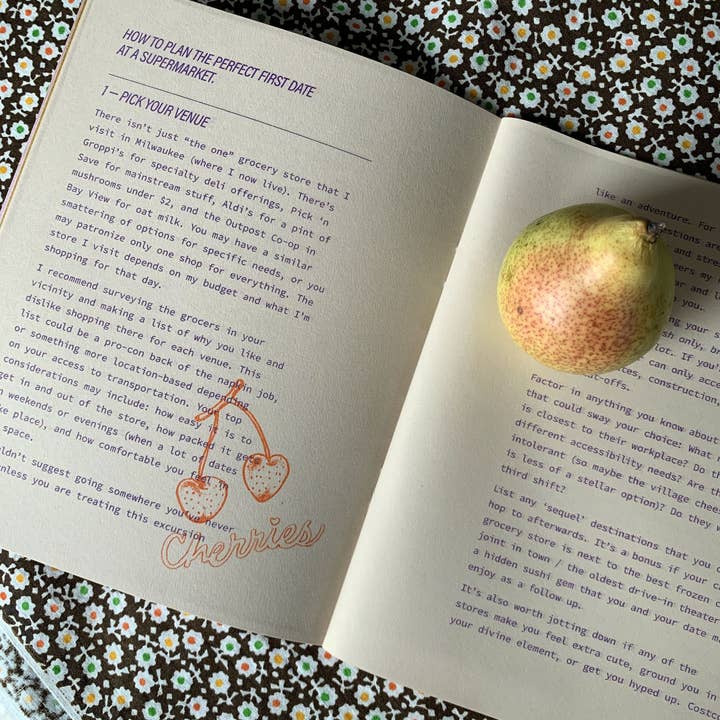 HOW TO PLAN THE PERFECT FIRST DATE
AT A SUPERMARKET.
1 — PICK YOUR VENUE
There isn't just "the one" grocery store that I
visit in Milwaukee (where I now live). There's
Groppi's for specialty deli offerings, Pick 'n
Save for mainstream stuff, Aldi's for a pint of
mushrooms under $2, and the Outpost Co-op in
Bay View for oat milk. You may have a similar
smattering of options for specific needs, or you
may patronize only one shop for everything. The
store I visit depends on my budget and what I'm
shopping for that day.
I recommend surveying the grocers in your
vicinity and making a list of why you like and
dislike shopping there for each venue. This
list could be a pro-con back of the napkin job,
or something more location-based depending
on your access to transportation. Your top
considerations may include: how easy it is to
get in and out of the store, how packed it gets
on weekends or evenings (when a lot of dates
take place), and how comfortable you feel in
space.
wouldn't suggest going somewhere you've never
unless you are treating this excursion
Cherries
like an adventure. For
and
you.
your
only,
lot. If you'
can only
construction
Factor in anything you know about
that could sway your choice: What
is closest to their workplace? Do th
different accessibility needs? Are th
intolerant (so maybe the village chee
is less of a stellar option)? Do they
third shift?
List any 'sequel' destinations that you
hop to afterwards. It's a bonus if your
grocery store is next to the best frozen
joint in town / the oldest drive-in theater
a hidden sushi gem that you and your date m
enjoy as a follow up.
It's also worth jotting down if any of the
stores make you feel extra cute, ground you in
your divine element, or get you hyped up. Costco